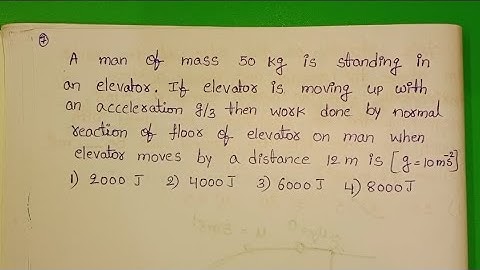 7
A man of mass 50 kg is standing in
an elevator. If elevator is moving up with
an acceleration g/3 then work done by normal
reaction of floor of elevator on man when
elevator moves by a distance 12 m is [g=10ms⁻²]
1) 2000 J 2) 4000 J 3) 6000 J 4) 8000 J